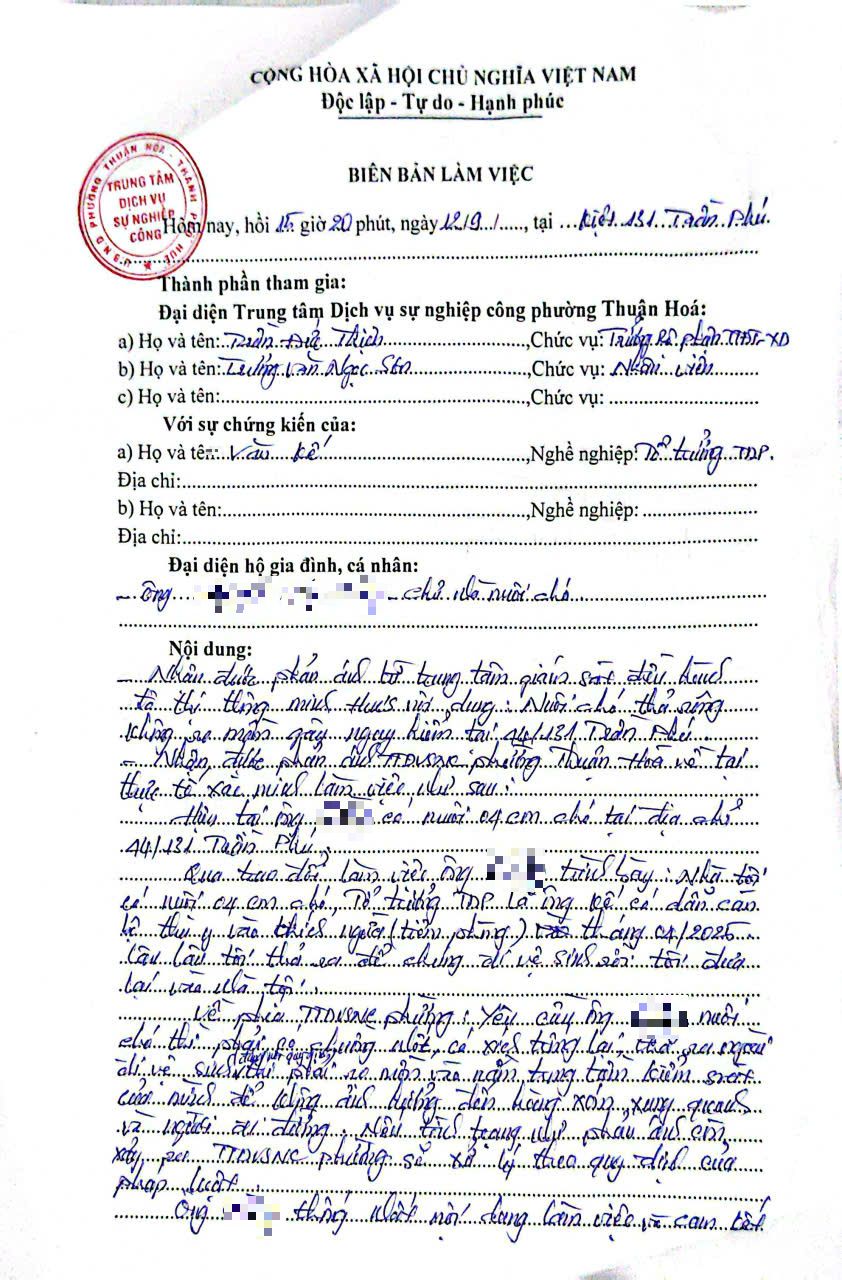 CỘNG HÒA XÃ HỘI CHỦ NGHĨA VIỆT NAM
Độc lập - Tự do - Hạnh phúc
BIÊN BẢN LÀM VIỆC
U.B.N.D PHƯỜNG THUẬN HÓA - THÀNH PHỐ HUẾ
TRUNG TÂM
DỊCH VỤ
SỰ NGHIỆP
CÔNG
Hôm nay, hồi 15 giờ 20 phút, ngày 12/9./....., tại ...Kiệt 131 Trần Phú.
Thành phần tham gia:
Đại diện Trung tâm Dịch vụ sự nghiệp công phường Thuận Hoá:
a) Họ và tên: Trần Đức Thịch, Chức vụ: Trưởng Bộ phận TTĐT-XD
b) Họ và tên: Trương Văn Ngọc Sơn, Chức vụ: Nhân viên
c) Họ và tên:, Chức vụ :
Với sự chứng kiến của:
a) Họ và tên: Văn Kế, Nghề nghiệp: Tổ trưởng TDP.
Địa chỉ:
b) Họ và tên:, Nghề nghiệp:
Địa chỉ:
Đại diện hộ gia đình, cá nhân:
- Ông - chủ nhà nuôi chó
Nội dung:
- Nhận được phản ánh từ trung tâm giám sát điều hành
đô thị thông minh Huế nội dung: Nuôi chó thả rông
không rọ mõm gây nguy hiểm tại 44/131 Trần Phú.
- Nhận được phản ánh TTDVSNC phường Thuận Hoá về tại
thực tế xác minh làm việc như sau:
Hiện tại ông có nuôi 04 con chó tại địa chỉ
44/131 Trần Phú.
Qua trao đổi làm việc ông trình bày: Nhà tôi
có nuôi 04 con chó, Tổ trưởng TDP là ông Kế có dẫn cán
bộ thú y vào thích ngừa (tiêm phòng) tháng 04/2025.
Lâu lâu tôi thả ra để chúng đi vệ sinh rồi tôi đưa
lại vào nhà tôi.
Về phía TTDVSNC phường: Yêu cầu ông nuôi
chó thì phải có chuồng nhốt, có xích từng lại, thả ra ngoài
đi vệ sinh (đúng nơi quy định) thì phải rọ mõm và nằm trong tầm kiểm soát
của mình để không ảnh hưởng đến hàng xóm xung quanh
và người đi đường. Nếu tình trạng như phản ánh còn
xảy ra TTDVSNC phường sẽ xử lý theo quy định của
pháp luật.
Ông thống nhất nội dung làm việc và cam kết